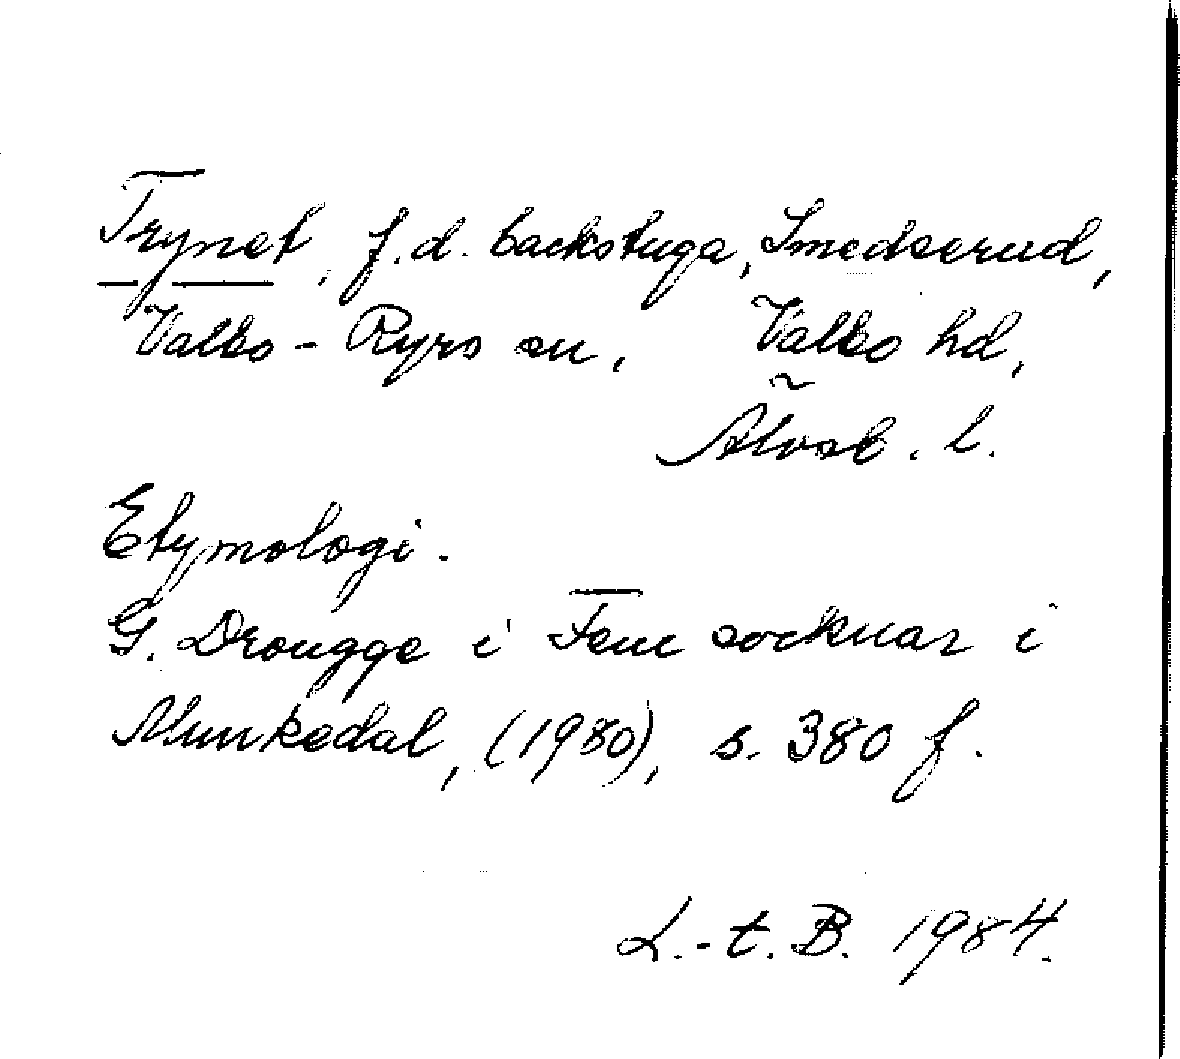 Trynet, f.d. backstuga, Smedserud,
Valbo-Ryrs sn, Valbo hd,
Älvsb. l.
Etymologi.
G. Drougge i Fem socknar i
Munkedal, (1980), s. 380 f.
L.-t. B. 1984.